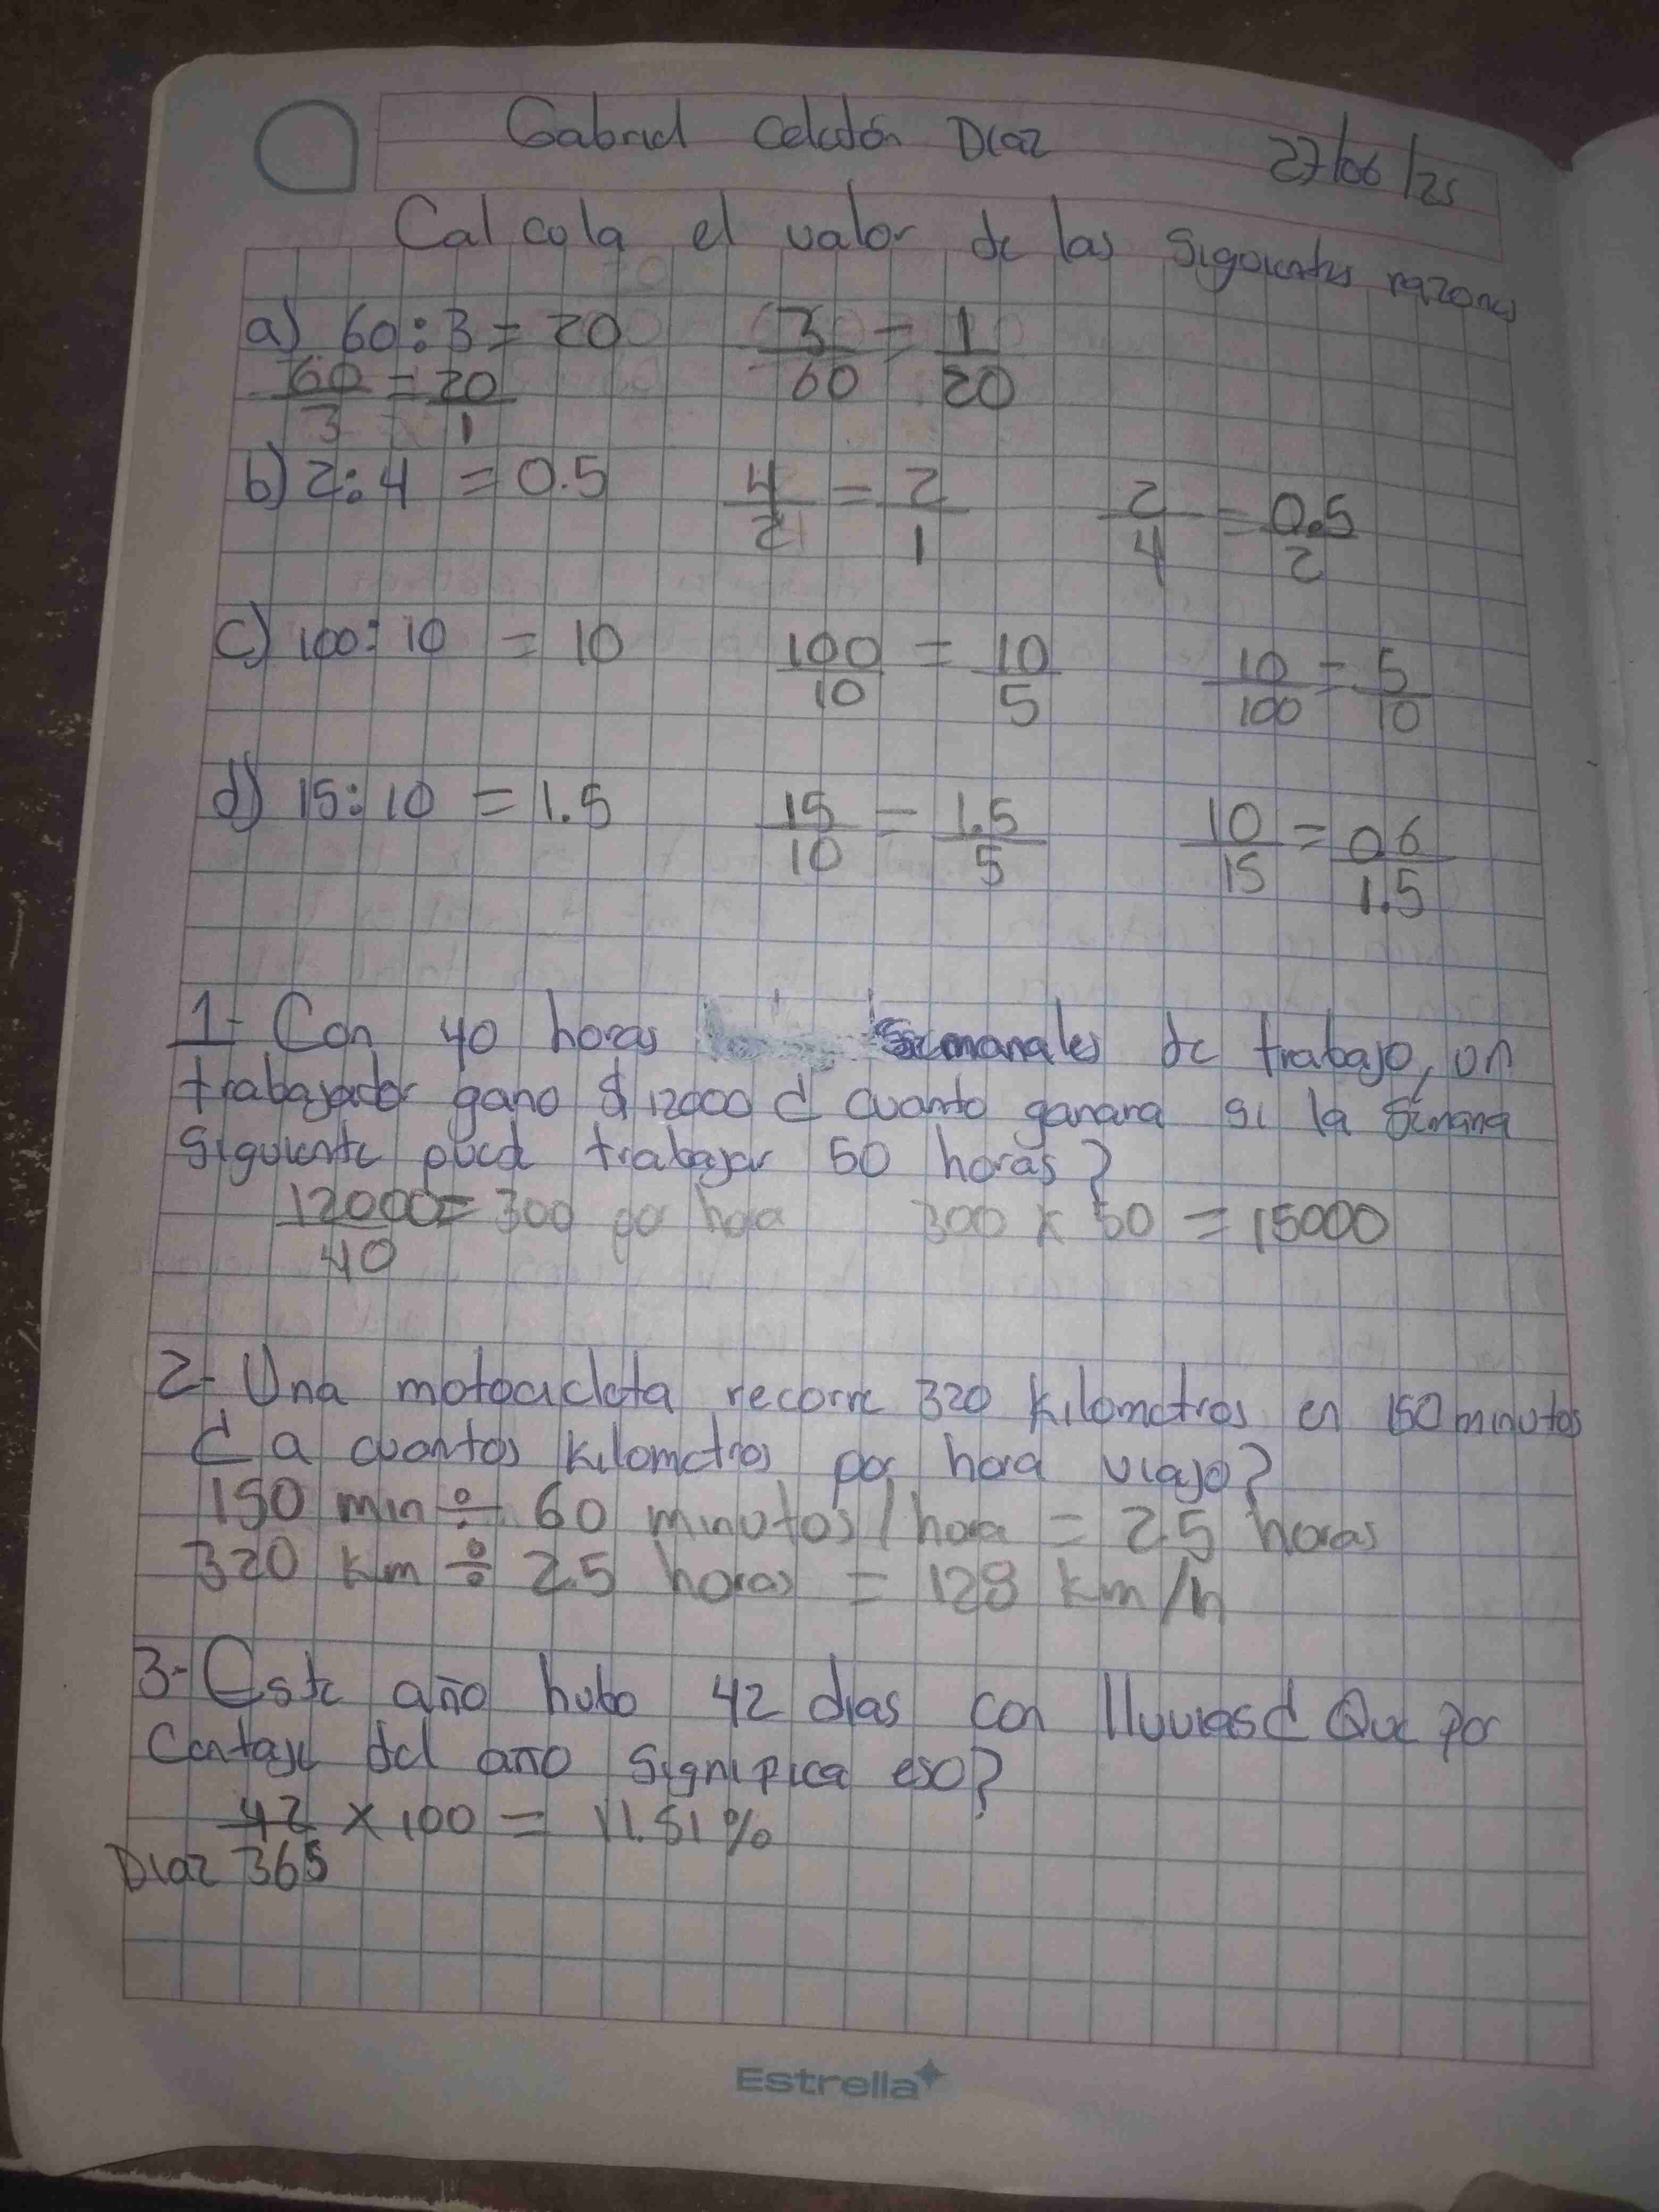 Gabriel Celestón Diaz 27/06/25
Calcula el valor de las siguientes razones
a) 60:3 = 20 3/60 = 1/20
60/3 = 20/1
b) 2:4 = 0.5 4/2 = 2/1 2/4 = 0.5/2
c) 100:10 = 10 100/10 = 10/5 10/100 = 5/10
d) 15:10 = 1.5 15/10 = 1.5/5 10/15 = 0.6/1.5
1- Con 40 horas semanales de trabajo, un
trabajador gano $12000 ¿ cuanto ganara si la semana
siguiente puede trabajar 50 horas?
12000/40 = 300 por hora 300 x 50 = 15000
2- Una motocicleta recorre 320 kilometros en 150 minutos
¿ a cuantos kilometros por hora viajo?
150 min ÷ 60 minutos/hora = 2.5 horas
320 km ÷ 2.5 horas = 128 km/h
3- Este año hubo 42 dias con lluvias ¿ Que por
centaje del año significa eso?
42/365 x 100 = 11.51%
Diaz
Estrella